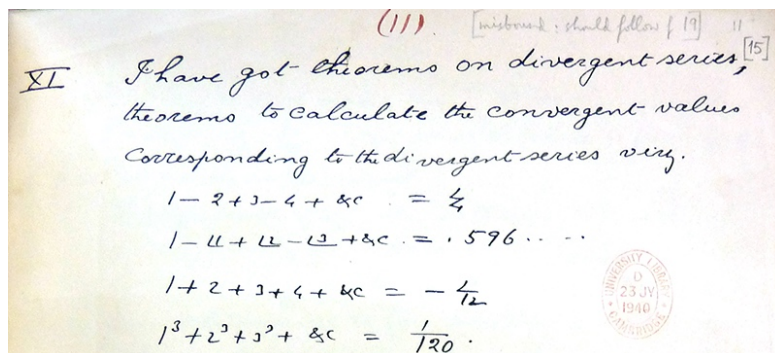 (11). [misbound: should follow f 19] 11
[15]
XI I have got theorems on divergent series,
theorems to calculate the convergent values
corresponding to the divergent series viz.
1 - 2 + 3 - 4 + &c = 1/4
1 - 1! + 2! - 3! + &c. = .596.....
1 + 2 + 3 + 4 + &c = - 1/12
1³ + 2³ + 3³ + &c = 1/120.
UNIVERSITY LIBRARY
D
23 JY
1940
CAMBRIDGE